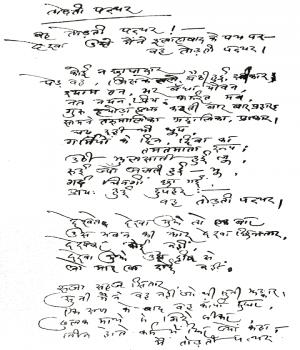 तोड़ती पत्थर
वह तोड़ती पत्थर!
देखा उसे मैंने इलाहाबाद के पथ पर
वह तोड़ती पत्थर।
कोई न छायादार
पेड़ वह, जिसके तले बैठी हुई, स्वीकार;
श्याम तन, भर बँधा यौवन,
नत नयन, प्रिय कर्म-रत मन,
गुरु हथौड़ा हाथ करती बार बार प्रहार
सामने तरु-मालिका, अट्टालिका, प्राकार।
चढ़ रही थी धूप
गर्मियों के दिन, दिवा का
तमतमाता रूप;
उठी झुलसाती हुई लू,
रुई ज्यों जलती हुई भू,
गर्द चिनगी छा गई,
प्रायः हुई दुपहर
वह तोड़ती पत्थर!
देखते देखा मुझे तो एक बार
उस भवन की ओर देखा छिन्नतार
देखकर कोई नहीं
देखा मुझे उस दृष्टि से
जो मार खा रोई नहीं,
सजा सहज सितार
सुनी मैंने वह नहीं जो थी सुनी झंकार,
एक क्षण के बाद वह काँपी सुघर,
ढुलक माथे से गिरे सीकर,
लीन होते कर्म में फिर ज्यों कहा
मैं तोड़ती पत्थर